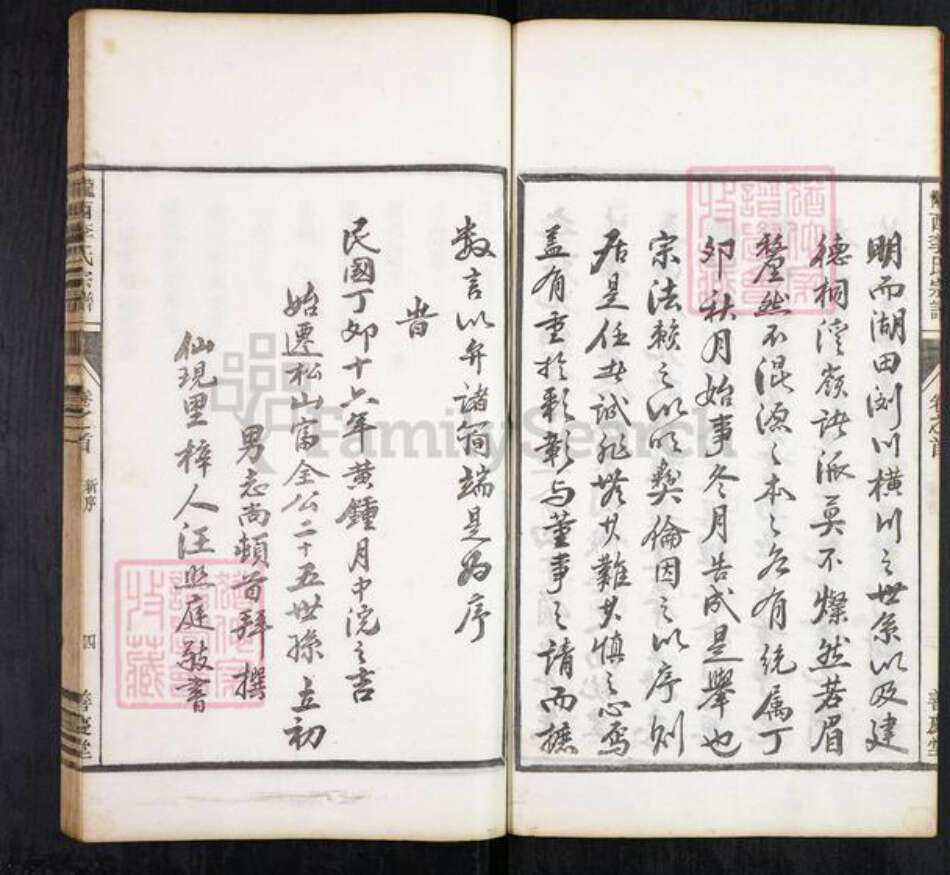 明而湖田浏川橫川之世系以及建
德桐溪嶺諸派莫不燦然若眉
犛然不混源之本之各有統属丁
卯秋月始事冬月告成是舉也
宗法賴之以明彝倫因之以序则
居是任者誠非無其難其慎之心焉
蓋有重於彰彰与董事之請而摭
隴西李氏宗譜
卷之首
新序
四
善慶堂
数言以弁諸简端是为序
旹
民國丁卯十六年黄鍾月中浣之吉
始遷松山富全公二十五世孫立初
男志尚頓首拜撰
仙現里梓人汪照庭敬書
FamilySearch